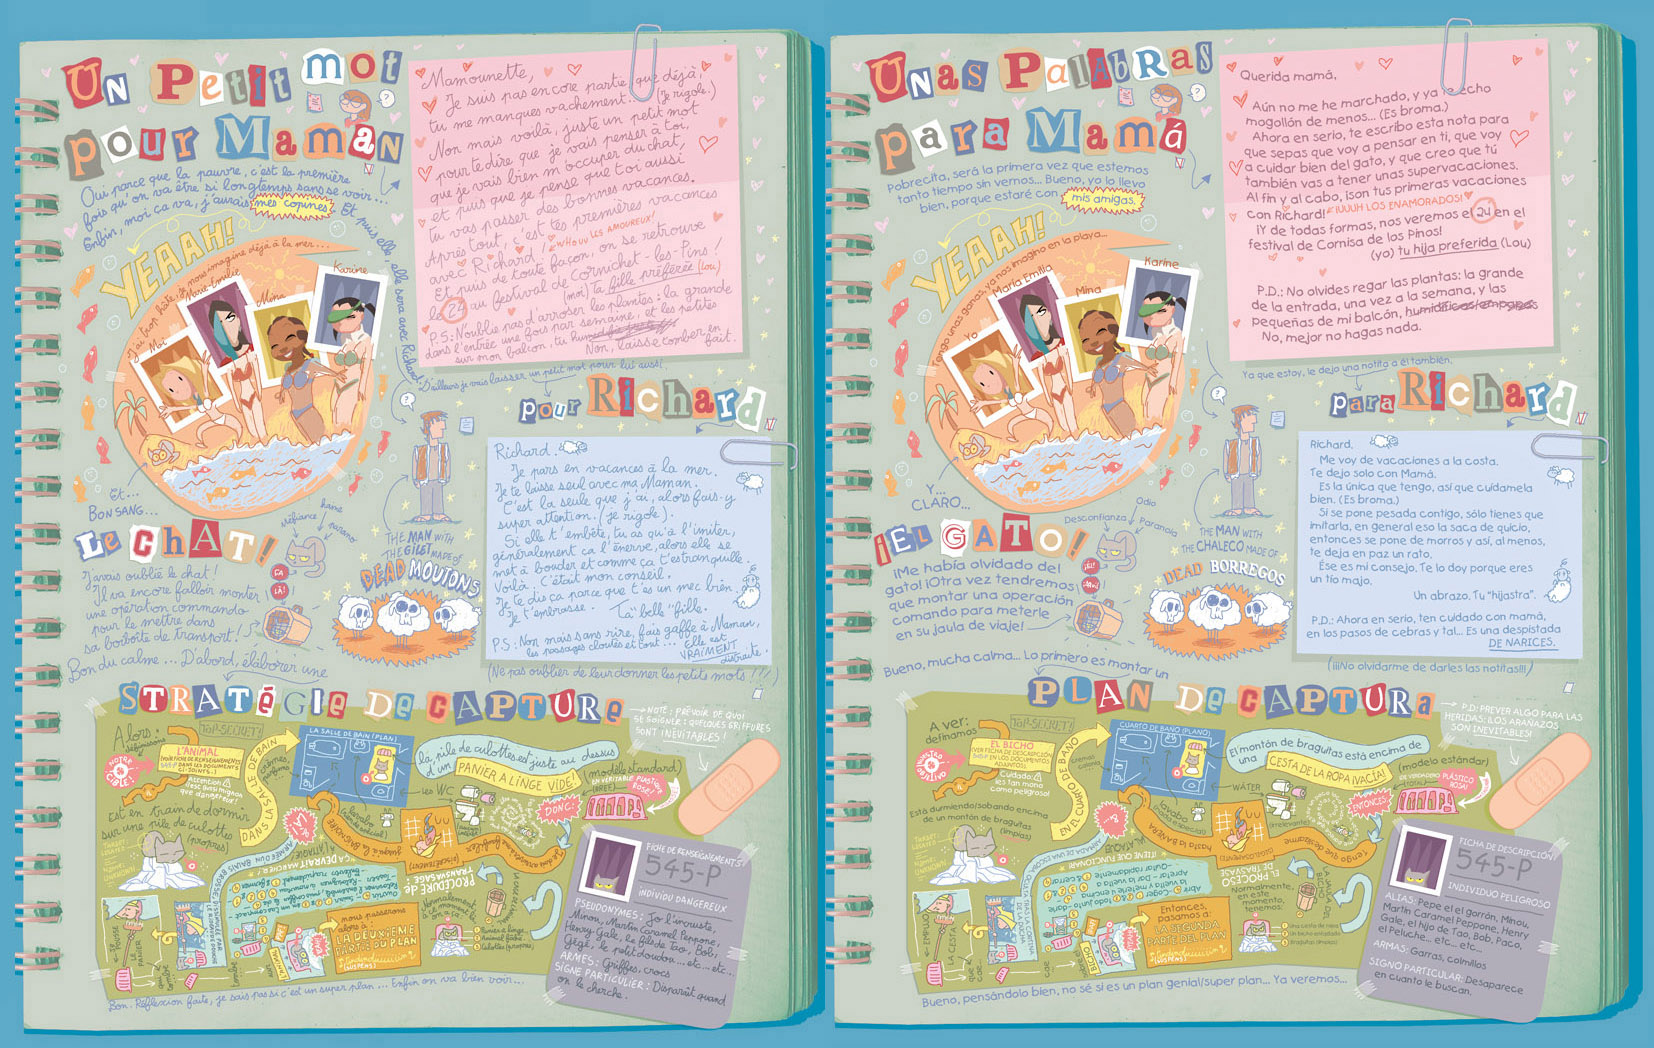 Un Petit mot
pour Maman
Oui parce que la pauvre, c'est la première
fois qu'on va être si longtemps sans se voir...
Enfin, moi ça va, j'aurais mes copines.
Et puis elle, elle sera avec Richard!
YEAAH!
j'ai trop hâte, je nous imagine déjà à la mer...
Moi
Marie-Emilie
Mina
Karine
Mamounette,
Je suis pas encore partie que déjà,
tu me manques vachement... (Je rigole.)
Non mais voilà, juste un petit mot
pour te dire que je vais penser à toi,
que je vais bien m'occuper du chat,
et puis que je pense que toi aussi
tu vas passer des bonnes vacances.
Après tout, c'est tes premières vacances
avec Richard! WHOUU LES AMOUREUX!
Et puis de toute façon, on se retrouve
le 24 au festival de Cornichet-les-Pins!
(moi) Ta fille préférée (Lou)
P.S: N'oublie pas d'arroser les plantes: la grande
dans l'entrée une fois par semaine, et les petites
sur mon balcon, tu
Non, laisse tomber en fait.
D'ailleurs je vais laisser un petit mot pour lui aussi.
pour Richard
Richard.
Je pars en vacances à la mer.
Je te laisse seul avec ma Maman.
C'est la seule que j'ai, alors fais-y
super attention. (je rigole).
Si elle t'embête, tu as qu'à l'imiter,
généralement ça l'énerve, alors elle se
met à bouder et comme ça t'es tranquille.
Voilà. C'était mon conseil.
Je te dis ça parce que t'es un mec bien.
Je t'embrasse. Ta "belle" fille.
P.S: Non mais sans rire, fais gaffe à Maman,
les passages cloutés et tout... Elle est
VRAIMENT
distraite.
(Ne pas oublier de leur donner les petits mots!!!)
Et...
BON SANG...
Le chat!
méfiance
haine
parano
THE MAN WITH
THE GILET MADE OF
DEAD MOUTONS
J'avais oublié le chat!
Il va encore falloir monter
une opération commando
pour le mettre dans
sa boiboîte de transport!
Bon du calme... D'abord, élaborer une
STRATÉGIE DE CAPTURE
NOTE: PRÉVOIR DE QUOI
SE SOIGNER: QUELQUES GRIFFURES
SONT INÉVITABLES!
Alors:
définissons
NOTRE
CIBLE!
L'ANIMAL
TOP-SECRET!
Attention!
est en train de dormir
sur une pile de culottes
(propres)
DANS LA SALLE DE BAIN
LA SALLE DE BAIN (PLAN)
WC
lavabo
là, pile de culottes est juste au dessus
d'un PANIER À LINGE VIDE!
(modèle standard)
EN VÉRITABLE PLASTIQUE
ROSE!
DONC:
PROCÉDURE de
TRANSVASAGE
Normalement
à ce moment là
on a:
nous passerons
alors à
LA DEUXIEME
PARTIE DU PLAN
FICHE DE RENSEIGNEMENTS
545-P
INDIVIDU DANGEREUX
PSEUDONYMES: Jo l'incruste,
Minou, Martin Caramel Peppone,
Henry Gale, le fils de Tao, Bob,
Gégé, le petit doudou... etc... etc...
ARMES: Griffes, crocs
SIGNE PARTICULIER: Disparaît quand
on le cherche.
Bon. Réflexion faite, je sais pas si c'est un super plan... Enfin on va bien voir...
Unas Palabras
para Mamá
Pobrecita, será la primera vez que estemos
tanto tiempo sin vernos... Bueno, yo lo llevo
bien, porque estaré con mis amigas.
YEAAH!
Tengo unas ganas, ya nos imagino en la playa...
Yo
María Emilia
Mina
Karine
Querida mamá,
Aún no me he marchado, y ya echo
mogollón de menos... (Es broma.)
Ahora en serio, te escribo esta nota para
que sepas que voy a pensar en ti, que voy
a cuidar bien del gato, y que creo que tú
también vas a tener unas supervacaciones.
Al fin y al cabo, ¡son tus primeras vacaciones
con Richard! ¡UUUH LOS ENAMORADOS!
¡Y de todas formas, nos veremos el 24 en el
festival de Cornisa de los Pinos!
(yo) tu hija preferida (Lou)
P.D.: No olvides regar las plantas: la grande
de la entrada, una vez a la semana, y las
pequeñas de mi balcón,
No, mejor no hagas nada.
Ya que estoy, le dejo una notita a él también.
para Richard
Richard,
Me voy de vacaciones a la costa.
Te dejo solo con Mamá.
Es la única que tengo, así que cuídamela
bien. (Es broma).
Si se pone pesada contigo, sólo tienes que
imitarla, en general eso la saca de quicio,
entonces se pone de morros y así, al menos,
te deja en paz un rato.
Ése es mi consejo. Te lo doy porque eres
un tío majo.
Un abrazo. Tu "hijastra".
P.D.: Ahora en serio, ten cuidado con mamá,
en los pasos de cebras y tal... Es una despistada
DE NARICES.
(¡¡¡No olvidarme de darles las notitas!!!)
Y...
CLARO...
¡EL GATO!
Desconfianza
Odio
Paranoia
THE MAN WITH
THE CHALECO MADE OF
DEAD BORREGOS
¡Me había olvidado del
gato! ¡Otra vez tendremos
que montar una operación
comando para meterle
en su jaula de viaje!
Bueno, mucha calma... Lo primero es montar un
PLAN DE CAPTURA
P.D: PREVER ALGO PARA LAS
HERIDAS: ¡LOS ARAÑAZOS
SON INEVITABLES!
A ver:
definamos
NUESTRO
OBJETIVO
EL BICHO
(VER FICHA DE DESCRIPCIÓN
545-P EN LOS DOCUMENTOS
ADJUNTOS)
TOP-SECRET!
Cuidado:
¡es tan mono
como peligroso!
Está durmiendo/sobando encima
de un montón de braguitas
(limpias)
EN EL CUARTO DE BAÑO
CUARTO DE BAÑO (PLANO)
WÁTER
lavabo
El montón de braguitas está encima de
una CESTA DE LA ROPA ¡VACÍA!
(modelo estándar)
DE VERDADERO PLÁSTICO
ROSA!
ENTONCES:
EL PROCESO
DE TRASVASE
Normalmente,
en este
momento,
tenemos:
Entonces,
pasamos a:
LA SEGUNDA
PARTE DEL PLAN
FICHA DE DESCRIPCIÓN
545-P
INDIVIDUO PELIGROSO
ALIAS: Pepe el gorrón, Minou,
Martin Caramel Peppone, Henry
Gale, el hijo de Tao, Bob, Paco,
el Peluche... etc... etc...
ARMAS: Garras, colmillos
SIGNO PARTICULAR: Desaparece
en cuanto le buscan.
Bueno, pensándolo bien, no sé si es un plan genial/super plan... Ya veremos...